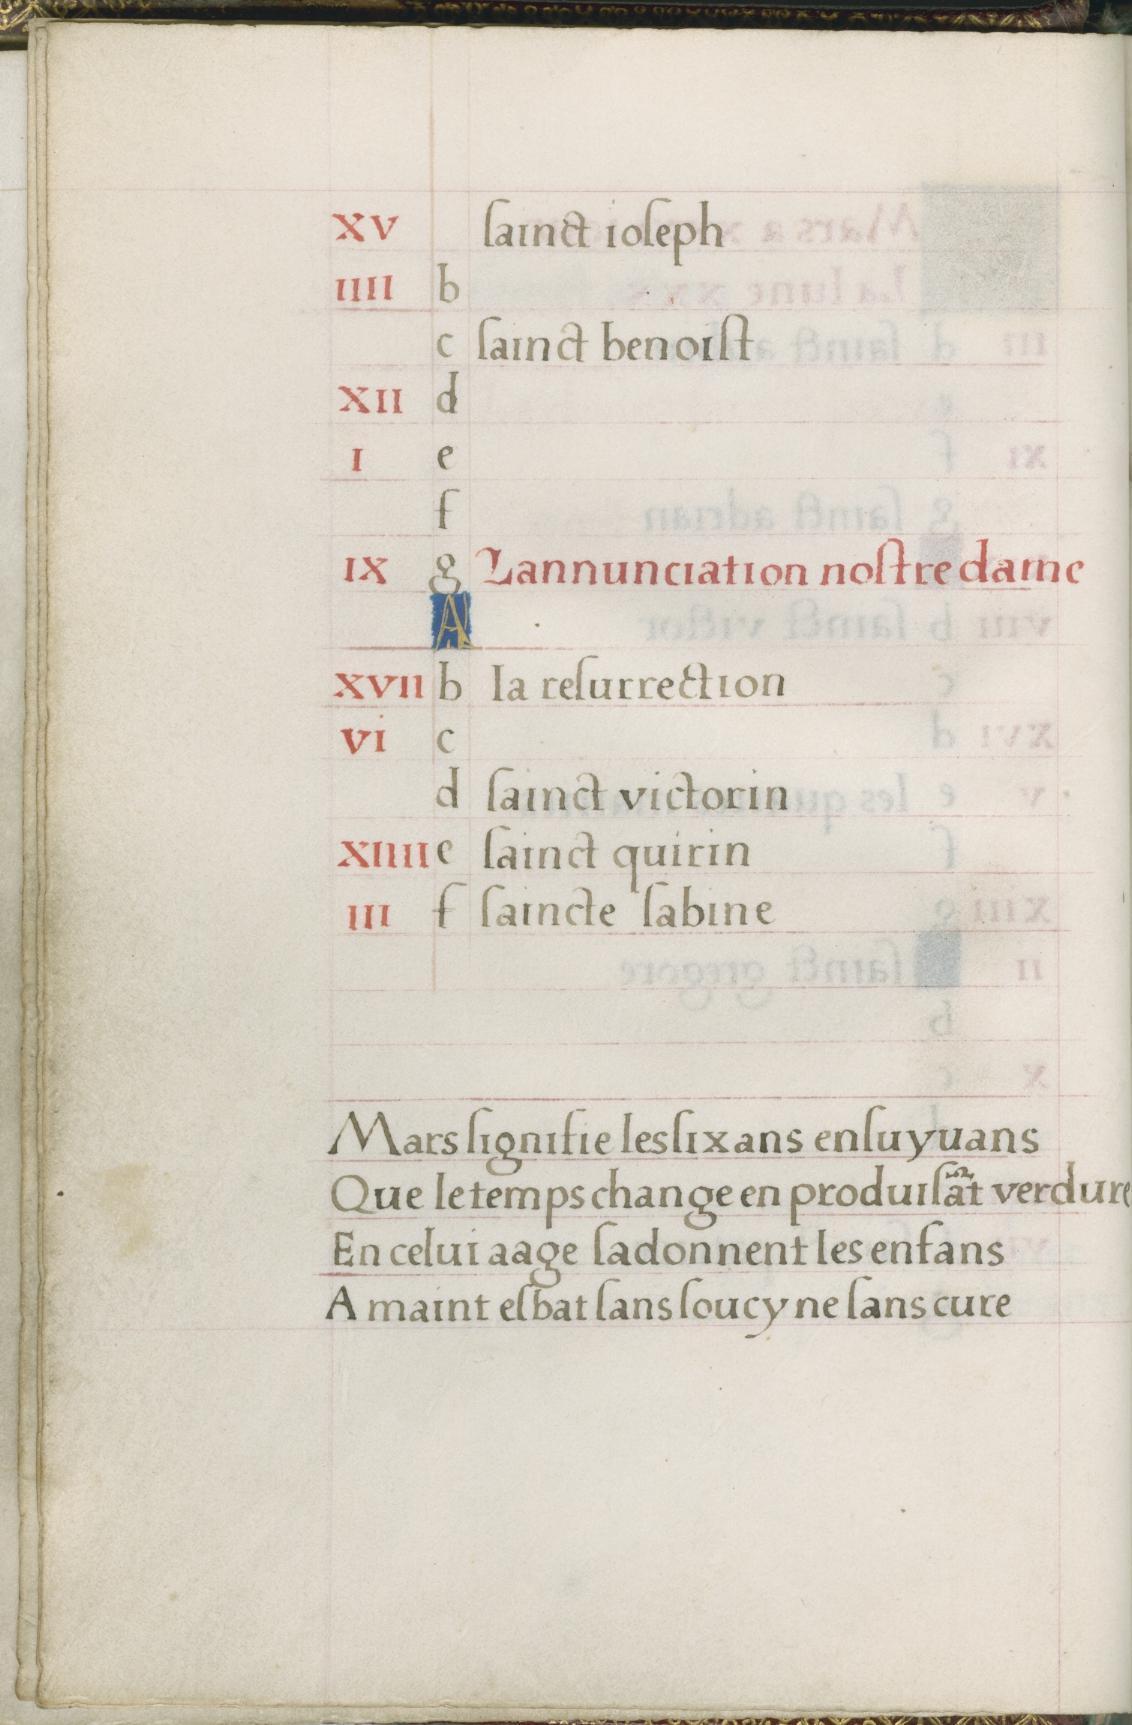 XV ſainct ioſeph
IIII b
c ſainct benoiſt
XII d
I e
f
IX g Lannunciation noſtre dame
A
XVII b la reſurrection
VI c
d ſainct victorin
XIIII e ſainct quirin
III f ſaincte ſabine
Mars ſignifie les ſix ans enſuyuans
Que le temps change en produiſãt verdure
En celui aage ſadonnent les enfans
A maint eſbat ſans ſoucy ne ſans cure